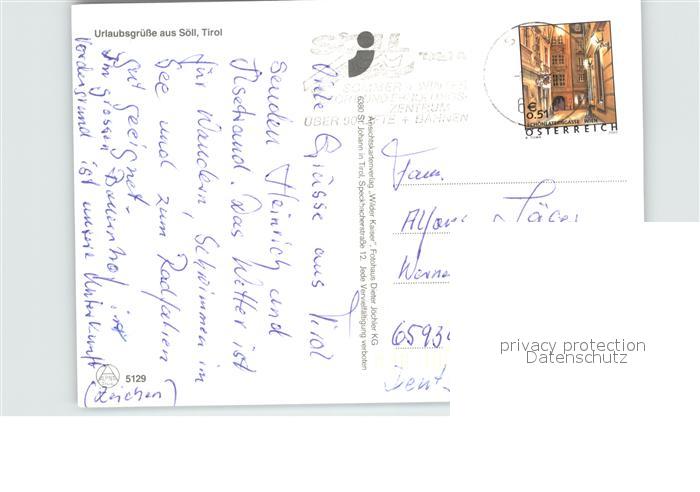 Urlaubsgrüße aus Söll, Tirol
SÖLL
TIROL
SOMMER + WINTER
ZENTRUM
ÜBER 90 LIFTE + BAHNEN
€ 0.51
SCHÖNLATERNGASSE WIEN
ÖSTERREICH
Viele Grüsse aus Tirol
senden Heinrich und
Das Wetter ist
für Wandern, Schwimmen im
See und zum Radfahren
gut geeignet.
Im grossen Bauernhof im
Vordergrund ist unsere Unterkunft
(Zeichen)
Ansichtskartenverlag „Wilder Kaiser“, Fotohaus Dieter Jöchler KG
6380 St. Johann in Tirol, Speckbacherstraße 12. Jede Vervielfältigung verboten
Fam.
Werne
6593
Deut
5129
privacy protection
Datenschutz